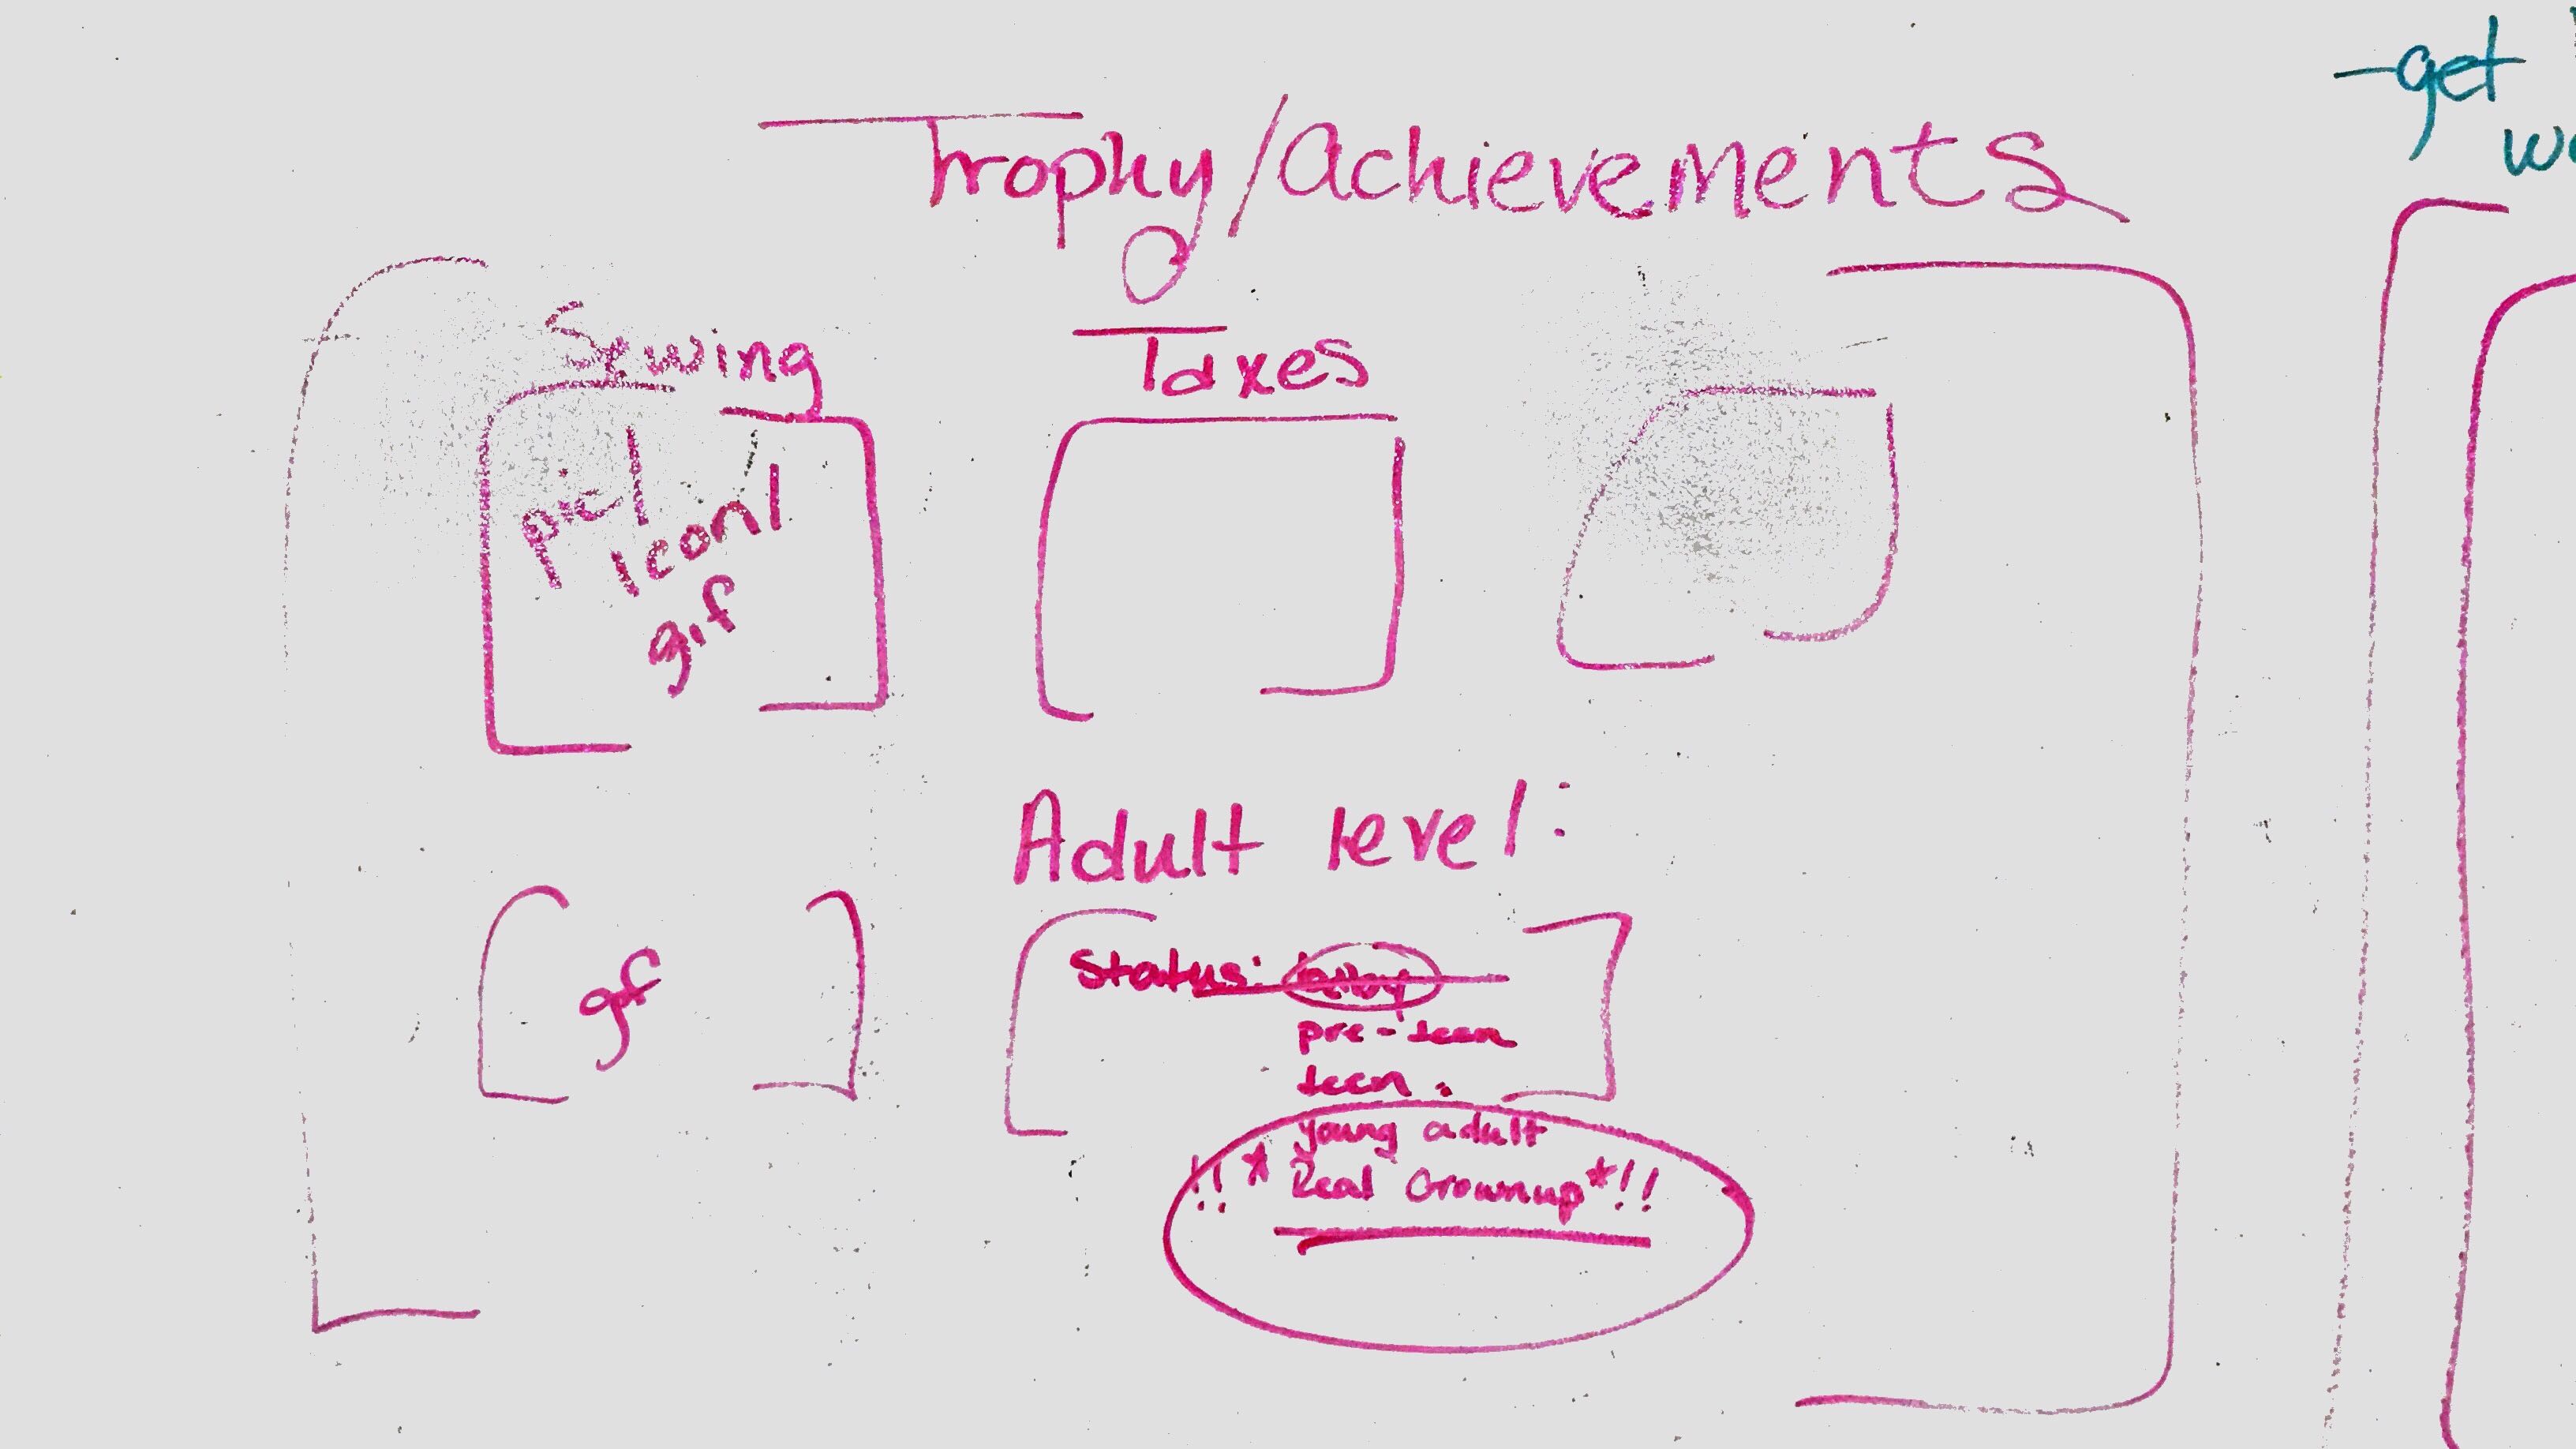 -get
Trophy/Achievements
Sewing
Taxes
pic/
icon/
gif
Adult level:
gif
Status: baby
pre-teen
teen
young adult
!!* Real Grownup *!!